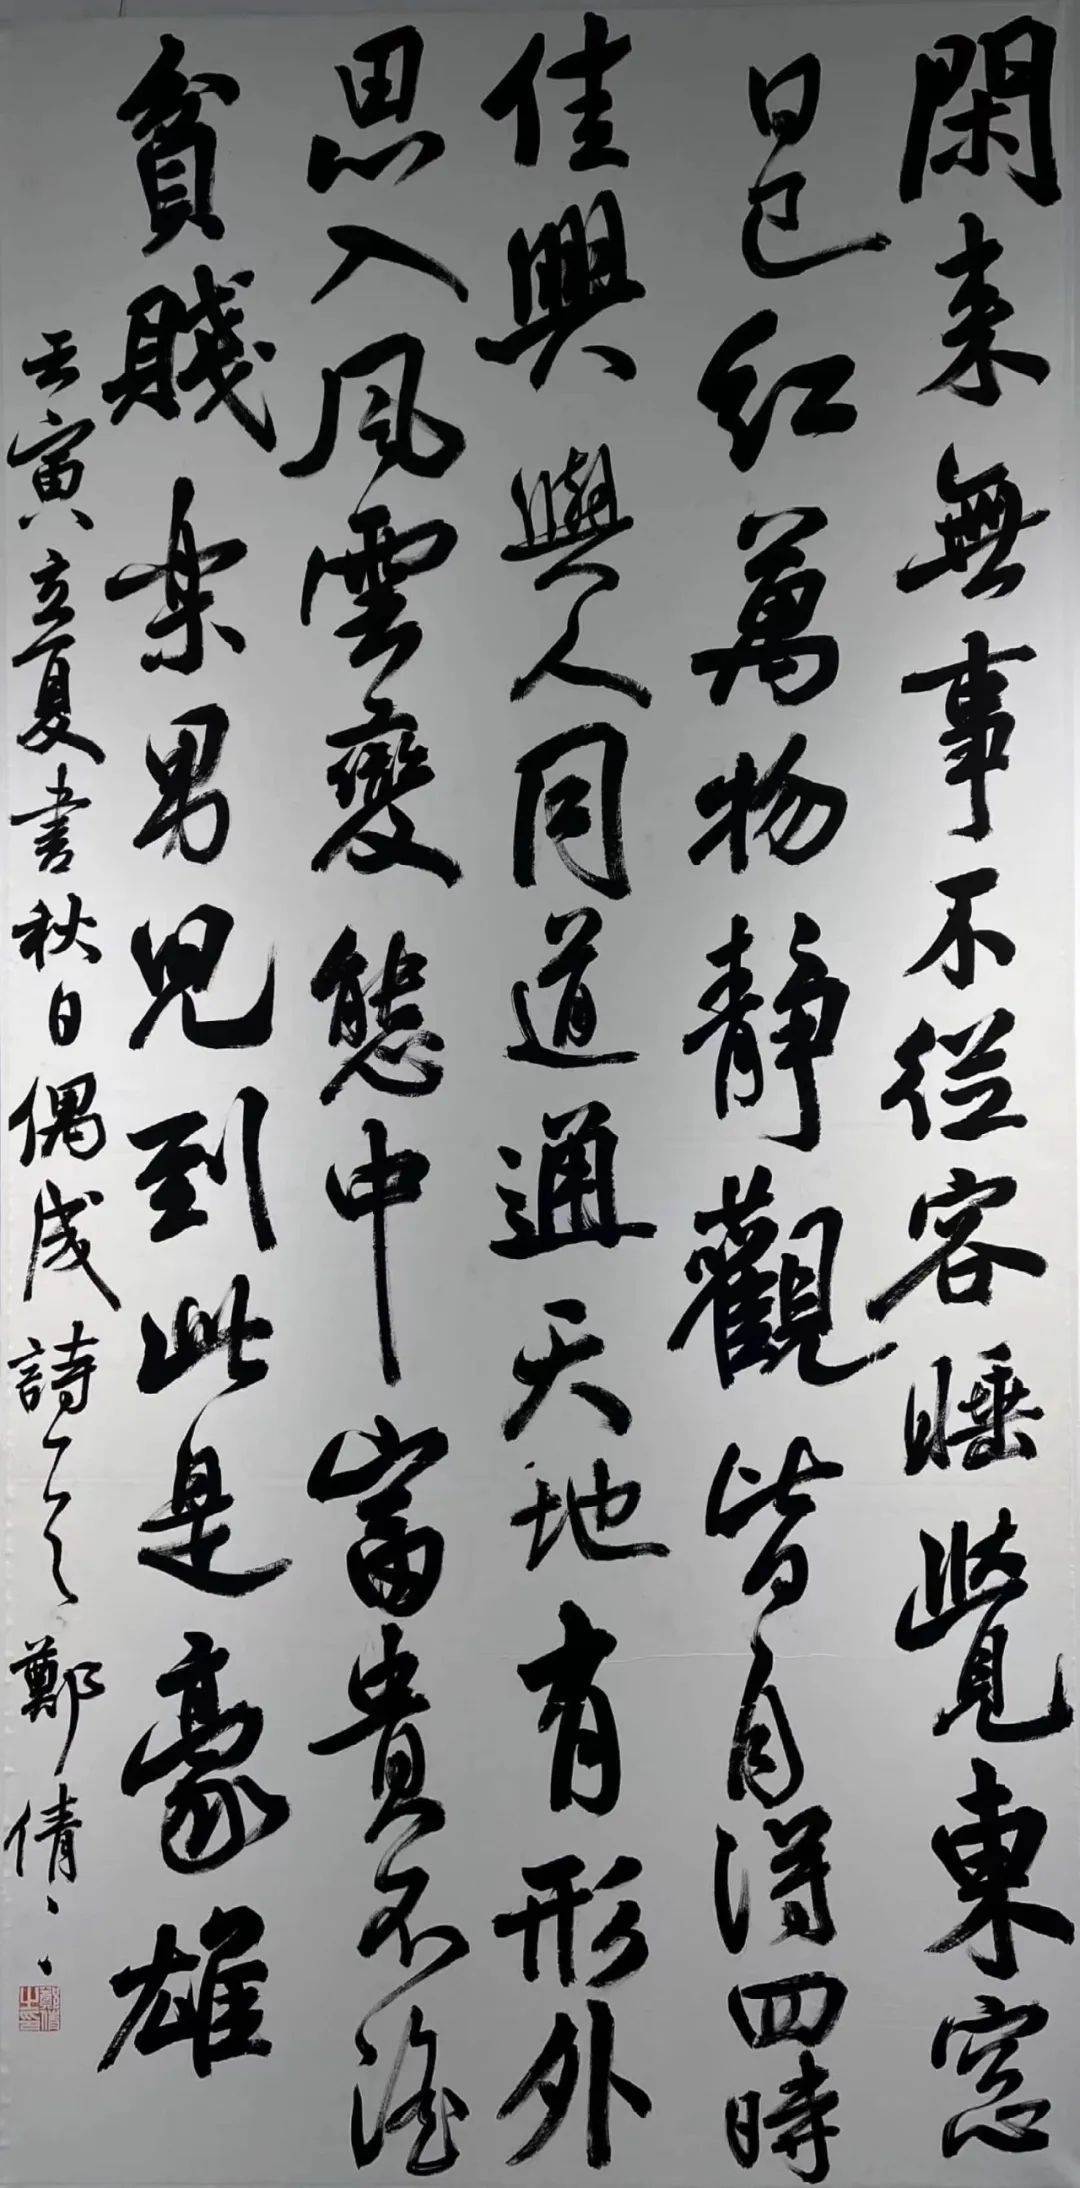 閑来無事不從容睡覺東窓
日已紅萬物靜觀皆自得四時
佳興與人同道通天地有形外
思入風雲變態中富貴不淫
貧賤楽男兒到此是豪雄
壬寅立夏書秋日偶成詩一首鄭倩倩